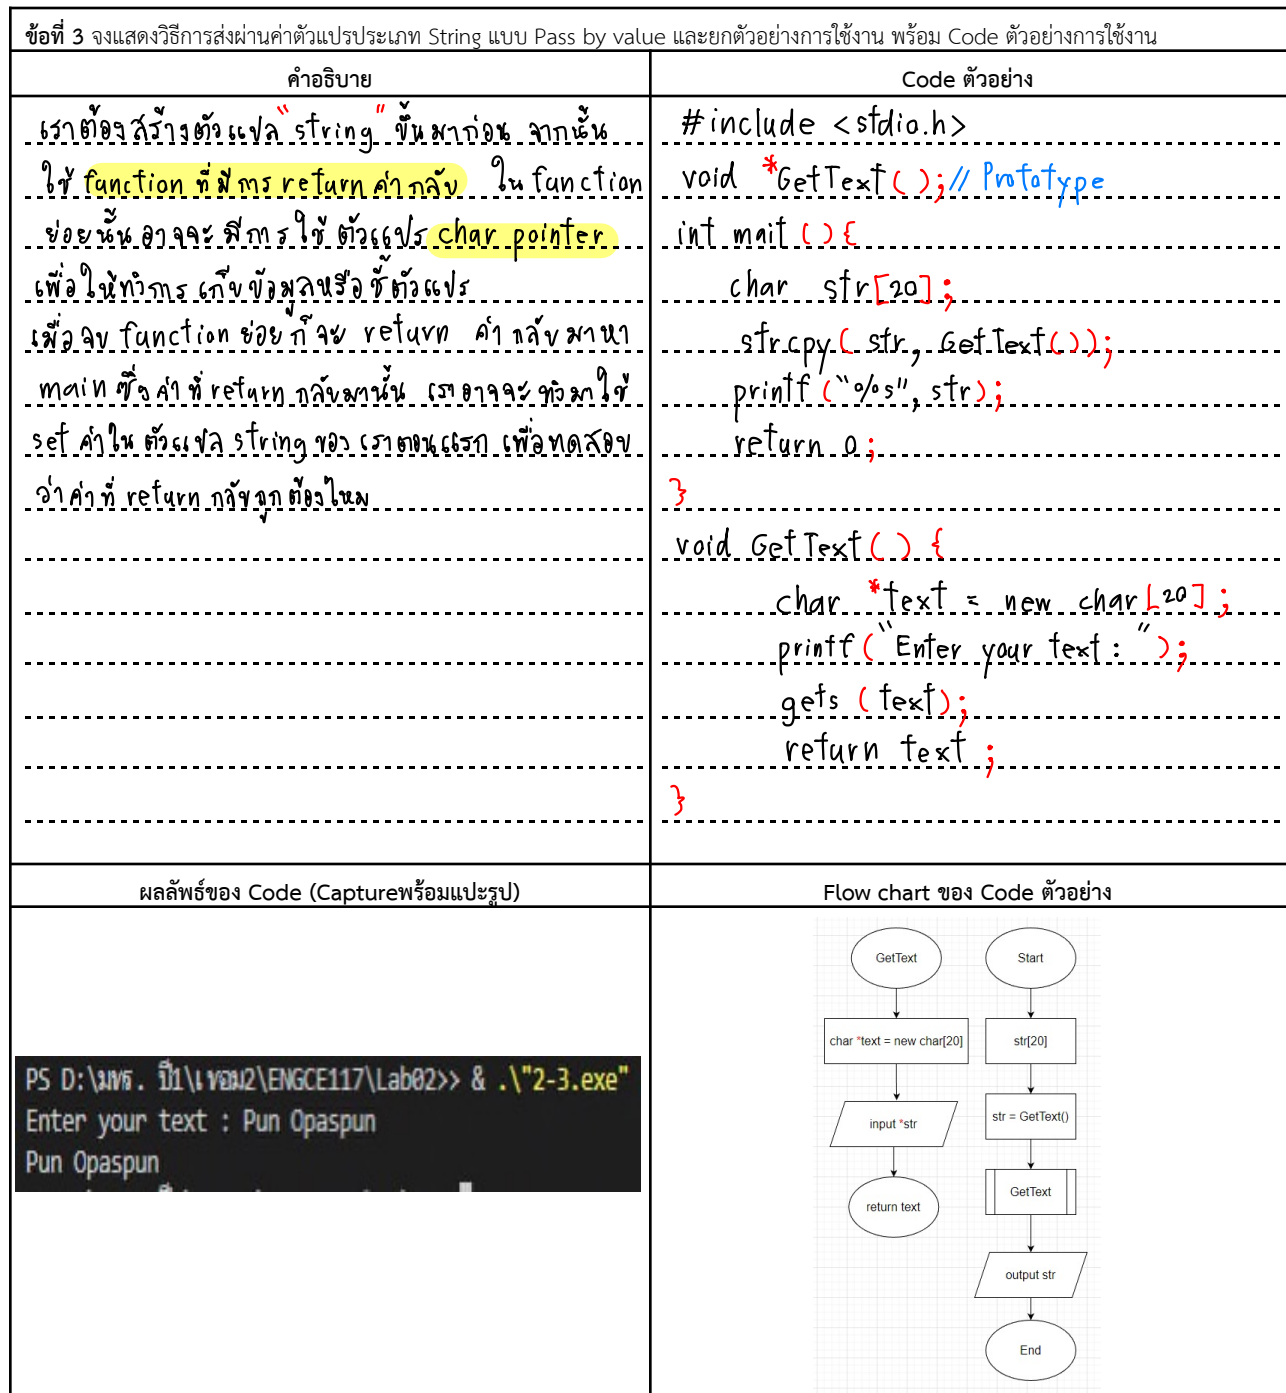 ข้อที่ 3 จงแสดงวิธีการส่งผ่านค่าตัวแปรประเภท String แบบ Pass by value และยกตัวอย่างการใช้งาน พร้อม Code ตัวอย่างการใช้งาน
คำอธิบาย
เราต้องสร้างตัวแปล "string" ขึ้นมาก่อน จากนั้น
ใช้ function ที่มีการ return ค่ากลับ ใน function
ย่อยนั้นอาจจะมีการใช้ ตัวแปร char pointer
เพื่อให้ทำการเก็บข้อมูลหรือชี้ตัวแปร
เมื่อจบ function ย่อยก็จะ return ค่ากลับมาหา
main ซึ่งค่าที่ return กลับมานั้น เราอาจจะ
set ค่าใน ตัวแปล string ของเราตอนแรก เพื่อทดสอบ
ว่าค่าที่ return กลับถูกต้องไหม
Code ตัวอย่าง
#include <stdio.h>
void *GetText();// Prototype
int mait(){
char str[20];
strcpy( str, GetText());
printf("%s", str);
return 0;
}
void GetText() {
char *text = new char[20];
printf("Enter your text : ");
gets (text);
return text ;
}
ผลลัพธ์ของ Code (Captureพร้อมแปะรูป)
PS D:\มทร. ปี1\เทอม2\ENGCE117\Lab02>> & .\"2-3.exe"
Enter your text : Pun Opaspun
Pun Opaspun
Flow chart ของ Code ตัวอย่าง
GetText
char *text = new char[20]
input *str
return text
Start
str[20]
str = GetText()
GetText
output str
End